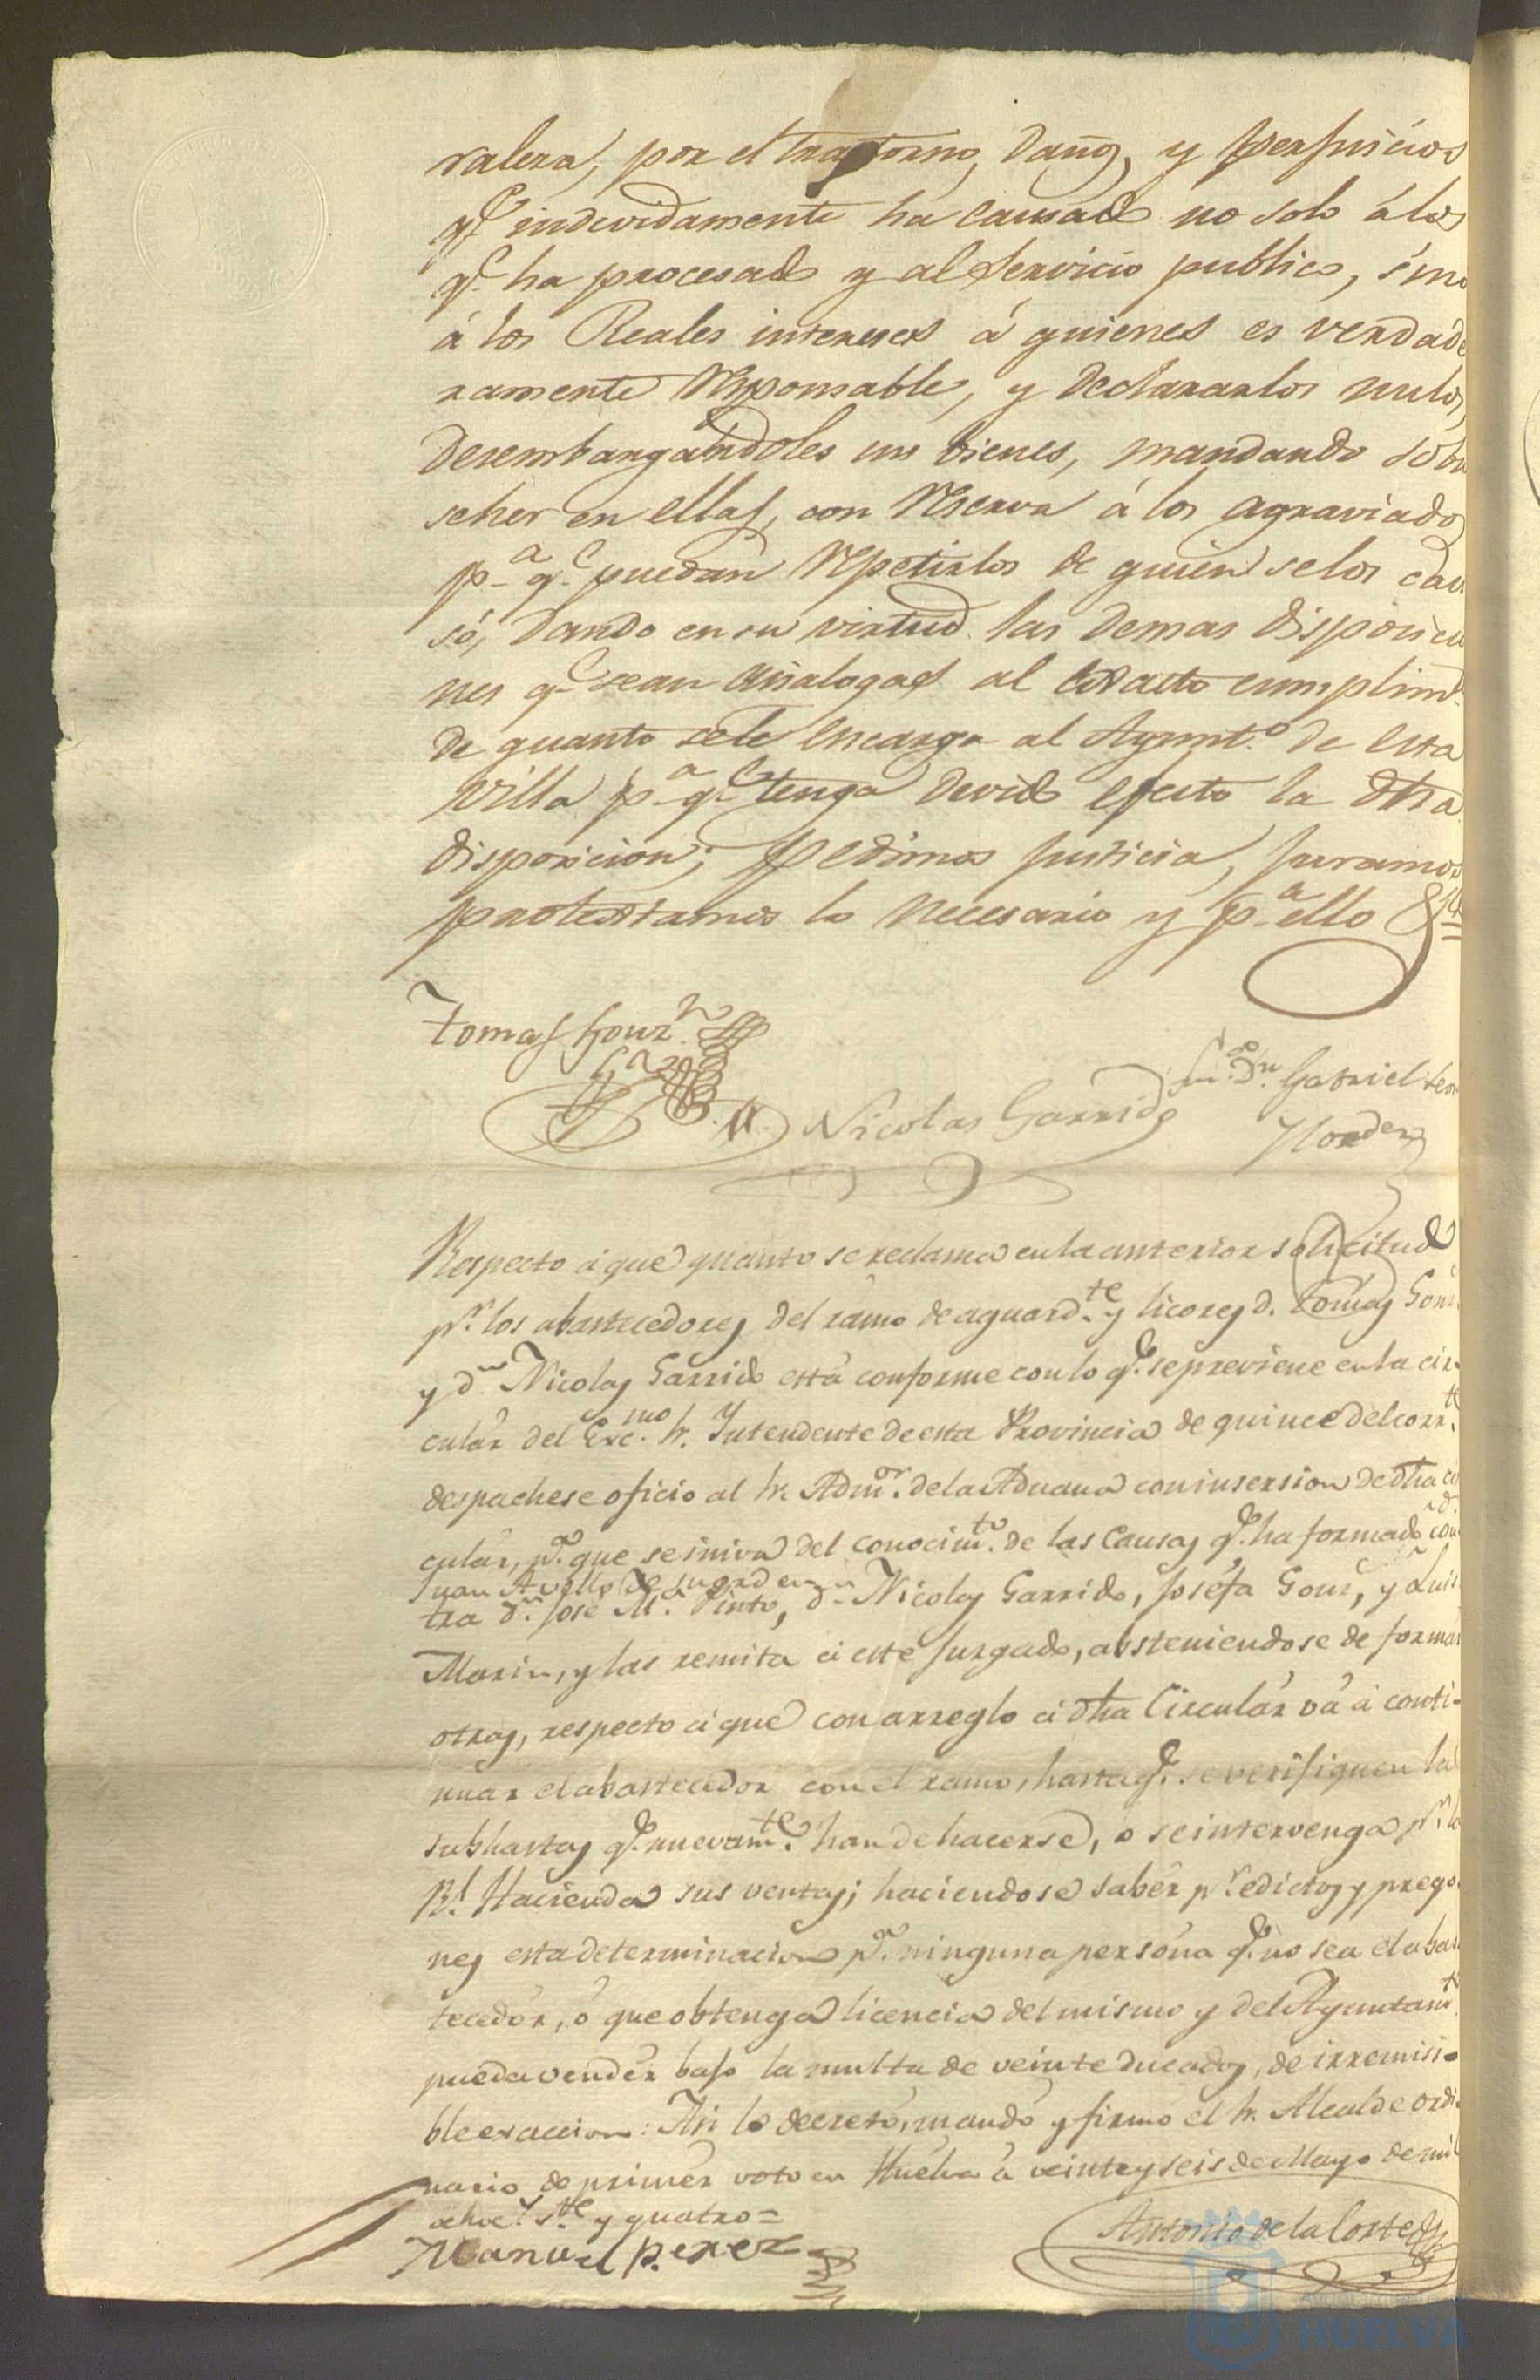 ralera, por el trastorno, daños, y perjuicios
q.e indevidamente ha causado no solo á los
q.e ha procesado y al Servicio publico, sino
á los Reales intereses á quienes es verdade
ramente responsable, y declararlos nulos,
desembargandoles sus bienes, mandando sobre
seher en ellas, con reserva á los agraviados
p.a q.e puedan repetirlos de quien se los cau
só, dando en su virtud las demas disposicio
nes q.e sean analogas al exacto cumplim.to
de quanto se le encarga al Ayunt.o de esta
villa p.a q.e tenga devido efecto la dha
disposicion; pedimos Justicia, juramos
protestamos lo necesario y p.a ello &.a
Tomas Gonz.z
Nicolas Garrido
D.n Gabriel
Respecto á que quanto se reclama en la anterior solicitud
p.r los abastecedores del ramo de aguard.te y licores d. Tomas Gonz.
y d.n Nicolas Garrido está conforme con lo q.e se previene en la cir-
cular del Exc.mo Sr. Intendente de esta Provincia de quince del corr.te
despachese oficio al Sr. Adm.or de la Aduana con insersion de dha cir
cular, p.a que se iniva del conocim.to de las Causas q.e ha formado con
Juan
tra d.n José M.a Pinto, d.n Nicolas Garrido, Joséfa Gonz, y Luis
Marin, y las remita á este Juzgado, absteniendose de formar
otras, respecto á que con arreglo á dha Circular vá á conti-
nuar el abastecedor con el ramo, hasta q.e se verifiquen las
subhastas q.e nuevam.te han de hacerse, o se intervenga p.r la
R.l Hacienda sus ventas; haciendose saber p.r edictos y prego
nes esta determinacion p.a ninguna persona q.e no sea el abas
tecedor, ó que obtenga licencia del mismo y del Ayuntam.to
pueda vender bajo la multa de veinte ducados, de irremisi-
ble exaccion: Asi lo decretó, mandó y firmó el Sr. Alcalde ordi-
nario de primer voto en Huelva á veinte y seis de Mayo de mil
y quatro=
Manuel perez
Antonio de la Corte
HUELVA